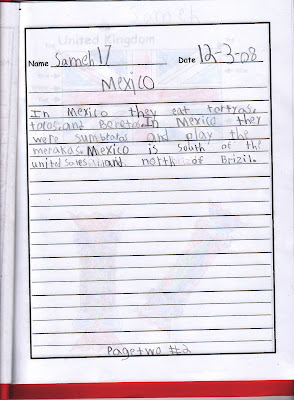 Sameh
United Kingdom
Name Sameh 17 Date 12-3-08
Mexico
In Mexico they eat tortyas,
tacos, and Boretos. In Mexico they
were sumbreros and play the
merakas. Mexico is south of the
united sates and north of Brizil.
Page two #2